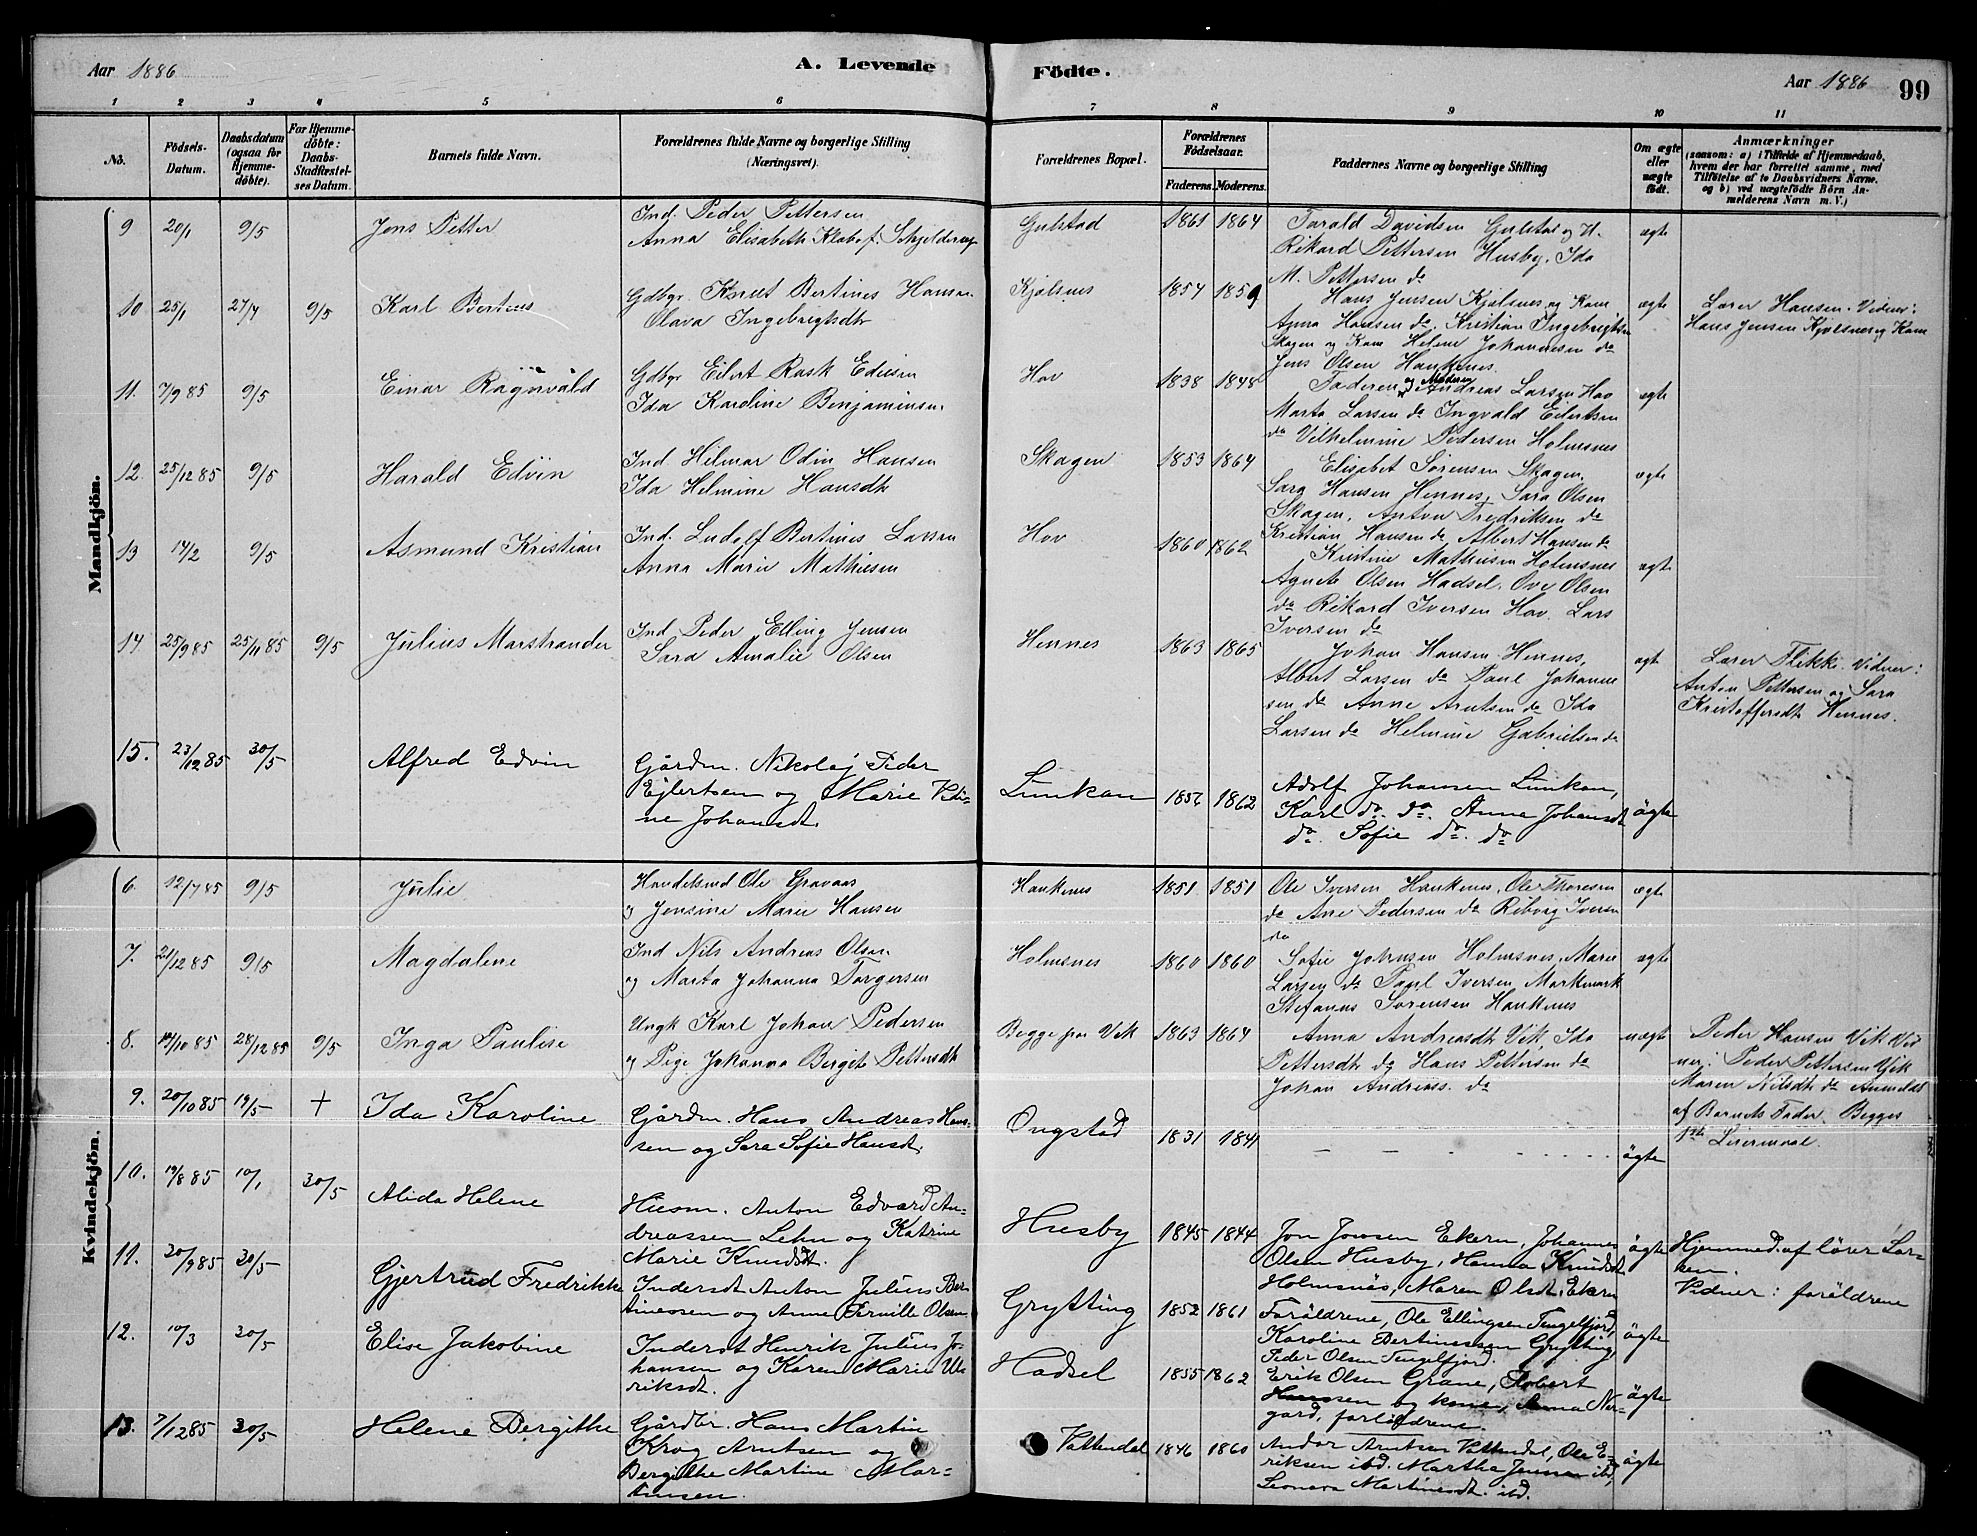 Aar 1886
A. Levende
Födte.
Aar 1886
99
1 2 3 4 5 6 7 8 9 10 11
No.
Födsels-Datum.
Daabsdatum (ogsaa for Hjemme-döbte).
For Hjemme-döbte: Daabs-Stadfæstelses Datum.
Barnets fulde Navn.
Forældrenes fulde Navne og borgerlige Stilling (Næringsvei).
Forældrenes Bopæl.
Forældrenes Födselsaar.
Faderens. Moderens.
Faddernes Navne og borgerlige Stilling
Om ægte eller uægte födt.
Anmærkninger
(saasom: a) i Tilfælde af Hjemmedaab, hvem der har forrettet samme, med Tilföielse af to Daabsvidners Navne, og b) ved uægtefödte Börn Anmelderens Navn m. V.)
Mandkjön.
9 20/1 9/5 Jens Petter
Ind. Peder Pettersen
Anna Elisabeth Klabof. Schjelderup
Gulstad 1861 1864
Tarald Davidsen Gulstad og H.
Rikard Pettersen Husby. Ida
M. Pettersen do
ægte
10 25/1 27/4 9/5 Karl Bertius
Gdbgr. Knut Bertines Hansen
Olava Ingebrigtsdtr
Kjølsnes 1854 1859
Hans Jensen Kjølsnes og Kone
Anna Hansen do. Kristian Ingebrigtsen
Skagen og Kone Helene Johannesen do
Jens Olsen Haukenes.
ægte
Lærer Hansen. Vidner:
Hans Jensen Kjølsnes og Kone
11. 7/9 85 9/5 Einar Ragnvald
Gdbgr Eilert Rask Ediesen
Ida Karoline Benjaminsen
Hov 1838 1848
Faderen og Moderen Andreas Larsen Hov
Marta Larsen do Ingvald Eilertsen
do Vilhelmine Pedersen Holmsnes
ægte
12. 25/12 85 9/5 Harald Edvin
Ind. Hilmar Odin Hansen
Ida Helmine Hansdtr
Skagen 1853 1864
Elisabet Sørensen Skagen,
Sara Hansen Hennes, Sara Olsen
Skagen, Anton Fredriksen do
Kristian Hansen do Albert Hansen do
ægte
13 14/2 9/5 Asmund Kristian
Ind. Ludolf Bertines Larsen
Anna Marie Mathiesen
Hov 1860 1862
Kristine Mathiesen Holmsnes
Agnete Olsen Hadsel. Ove Olsen
do Rikard Iversen Hov. Lars
Iversen do
ægte
14. 25/9 85 25/11 85 9/5 Julius Marstrander
Ind. Peder Elling Jensen
Sara Amalie Olsen
Hennes 1863 1865
Johan Hansen Hennes,
Albert Larsen do Paul Johanne
sen do Anne Arntsen do Ida
Larsen do Helmine Gabrielsen do
ægte
Lærer Flikke. Vidner:
Anton Pettersen og Sara
Kristoffersdtr Hennes.
15. 23/12 85 30/5 Alfred Edvin
Gårdm. Nikolaj Peder
Ejlertsen og Marie Vitine
Johansdt.
Lunkan 1856 1862
Adolf Johansen Lunkan,
Karl do. do. Anna Johansdt
do. Sofie do. do
ägte
Kvindekjön.
6. 12/7 85 9/5 Julie
Handelsmd Ole Gravaas
og Jensine Marie Hansen
Haukenes 1851 1851
Ole Iversen Haukenes, Ole Thoresen
do Ane Pedersen do Ribvig Iversen
do
ægte
7. 21/12 85 9/5 Magdalene
Ind Nils Andreas Olsen
og Marta Johanna Torgersen
Holmsnes 1860 1860
Sofie Johnsen Holmsnes, Marie
Larsen do Paul Iversen Markmark
Stefanus Sørensen Haukenes
ægte
8. 19/10 85 28/12 85 9/5 Inga Pauline
Ungk Karl Johan Pedersen
og Pige Johanna Bergite Pettersdtr
Begge paa Vik 1863 1864
Anna Andreasdtr Vik, Ida
Pettersdtr do Hans Pettersen do
Johan Andreass. do
uægte
Peder Hansen Vik Vid
ner: Peder Pettersen Vik
Maren Nilsdtr do Anmeldt
af Barnets Fader. Begges
1ste Leiermaal.
9. 20/10 85 19/5 + Ida Karoline
Gårdm. Hans Andreas Han-
sen og Sara Sofie Hansdt.
Ongstad 1831 1841
ägte
10. 19/8 85 10/1 30/5 Alida Helene
Husm. Anton Edvard An-
dreassen Lehn og Katrine
Marie Knudsdt.
Husby 1845 1844
Jon Jonsen Ekern, Johannes
Olsen Husby, Hanna Knudsdt
Holmsnäs, Maren Olsdt. Ekern
ägte
Hjemmed. af lärer Lar-
sen.
Vidner: foräldrene
11. 20/9 85 30/5 Gjertrud Fredrikke
Inderst Anton Julius Ber
tinessen og Anne Pernille Olsen
Grytting 1852 1861
Foräldrene, Ole Ellingsen Tengelfjord,
Karoline Bertinessen Grytting,
Peder Olsen Tengelfjord.
ägte
12. 10/3 30/5 Elise Jakobine
Inderst Henrik Julius Jo-
hansen og Karen Marie Ul
riksdt.
Hadsel 1855 1862
Erik Olsen Grane, Robert
Hanssen og kone, Anna Nor-
gård, foräldrene
ägte
13. 7/12 85 30/5 Helene Bergitte
Gårdbr. Hans Martin
Krog Arntsen og
Bergitte Martine Mar-
tinsen.
Vattendal 1846 1860
Andor Arntsen Vattendal, Ole E-
riksen ibd. Martha Jenssen ibd,
Leonora Martinesdt. ibd.
ägte